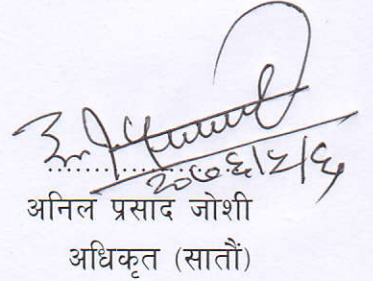 २०७६/२/६
अनिल प्रसाद जोशी
अधिकृत (सातौं)